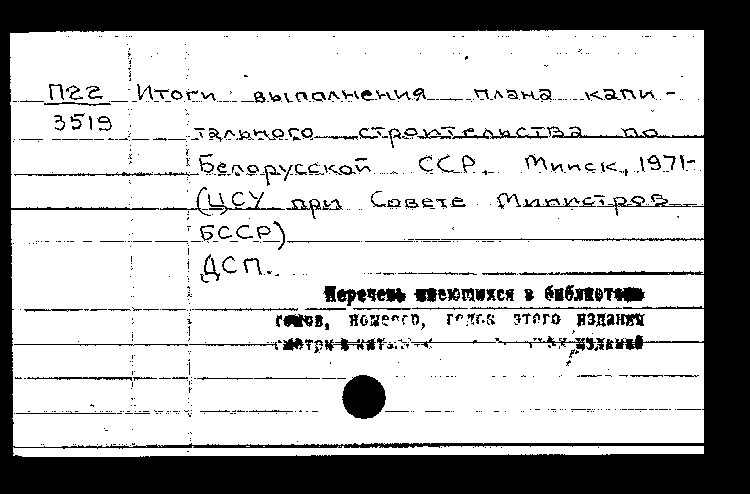 П22 Итоги выполнения плана капи-
3519
тального строительства по
Белорусской ССР. Минск, 1971-
(ЦСУ при Совете Министров
БССР)
ДСП.
Перечень имеющихся в библиотеке
томов, номеров, годов этого издания
смотри в изданий